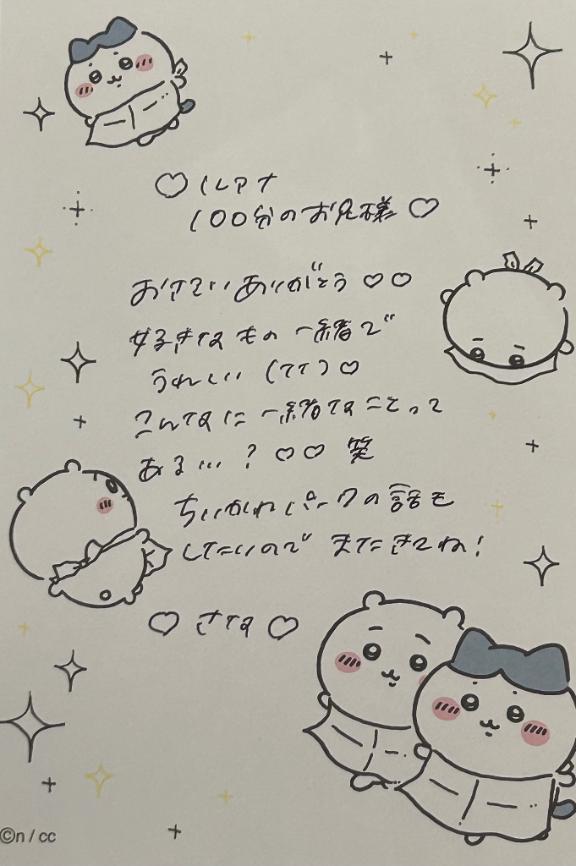 ♡ルアナ
100分のお兄様♡
おさそいありがとう♡♡
好きなもの一緒で
うれしい(TT)♡
こんなに一緒なことって
ある…?♡♡笑
ちいかわパークの話も
したいので またきてね!
♡さな♡
©n / cc